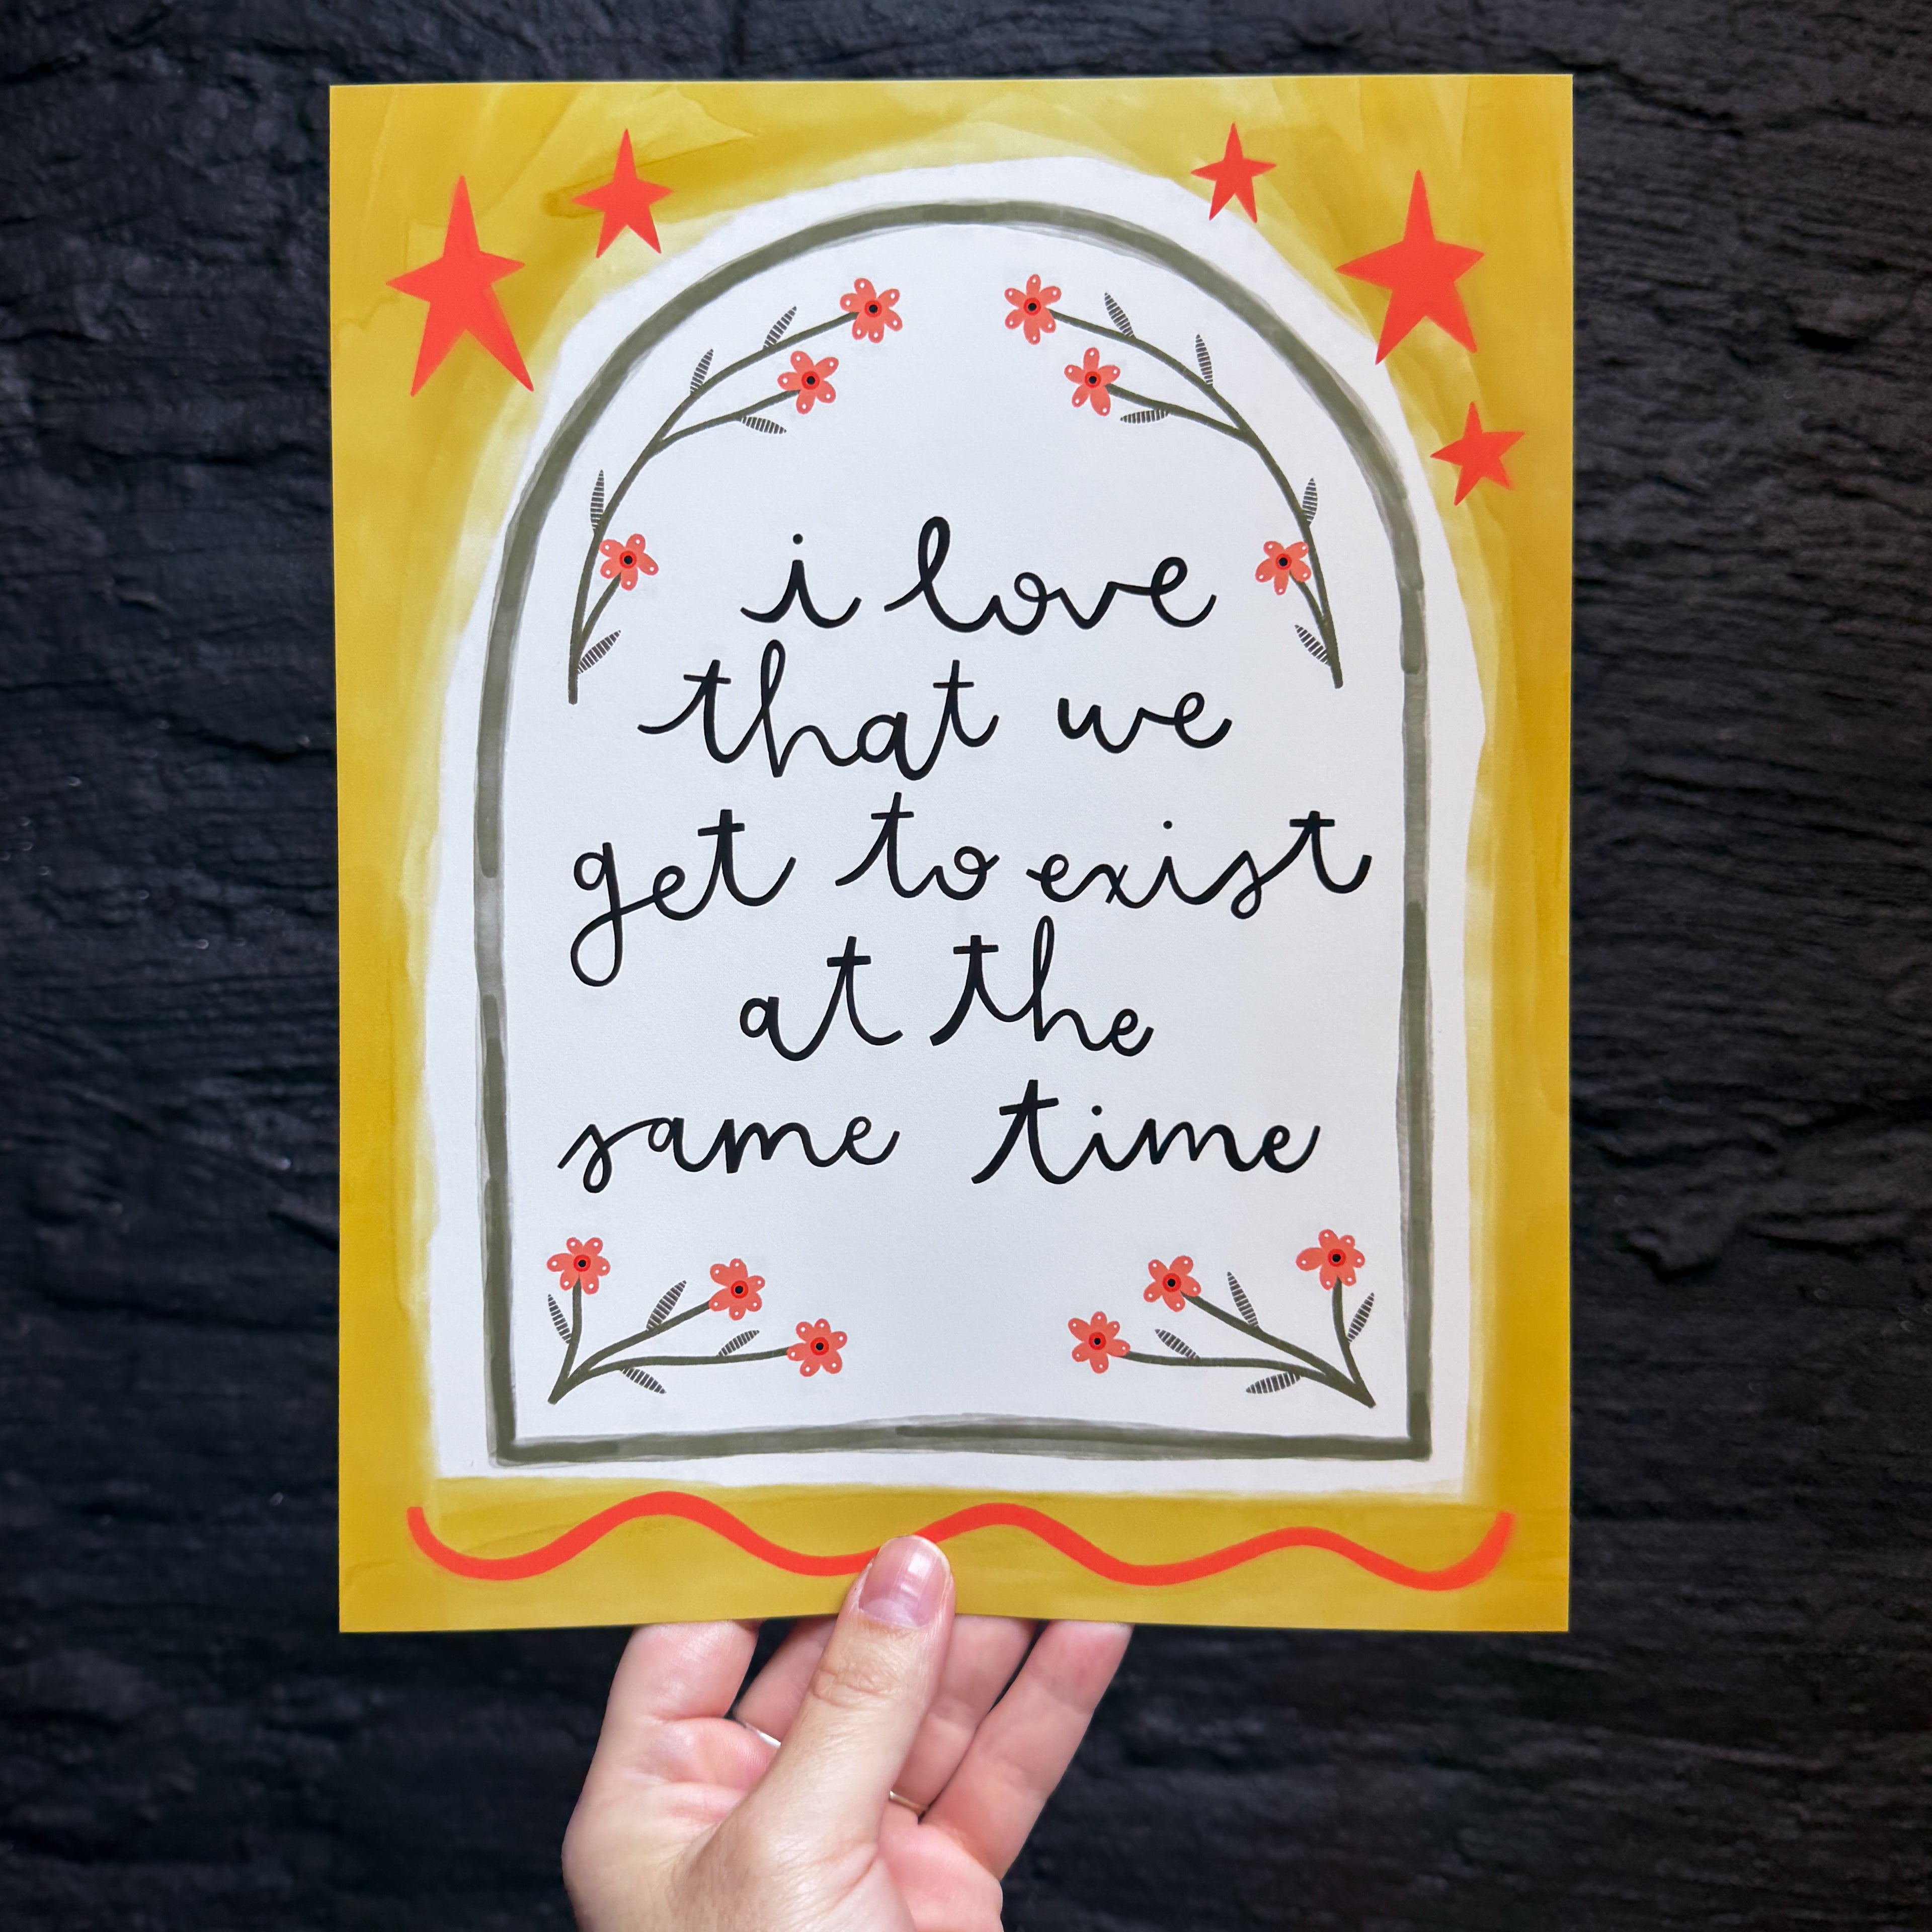 i love
that we
get to exist
at the
same time